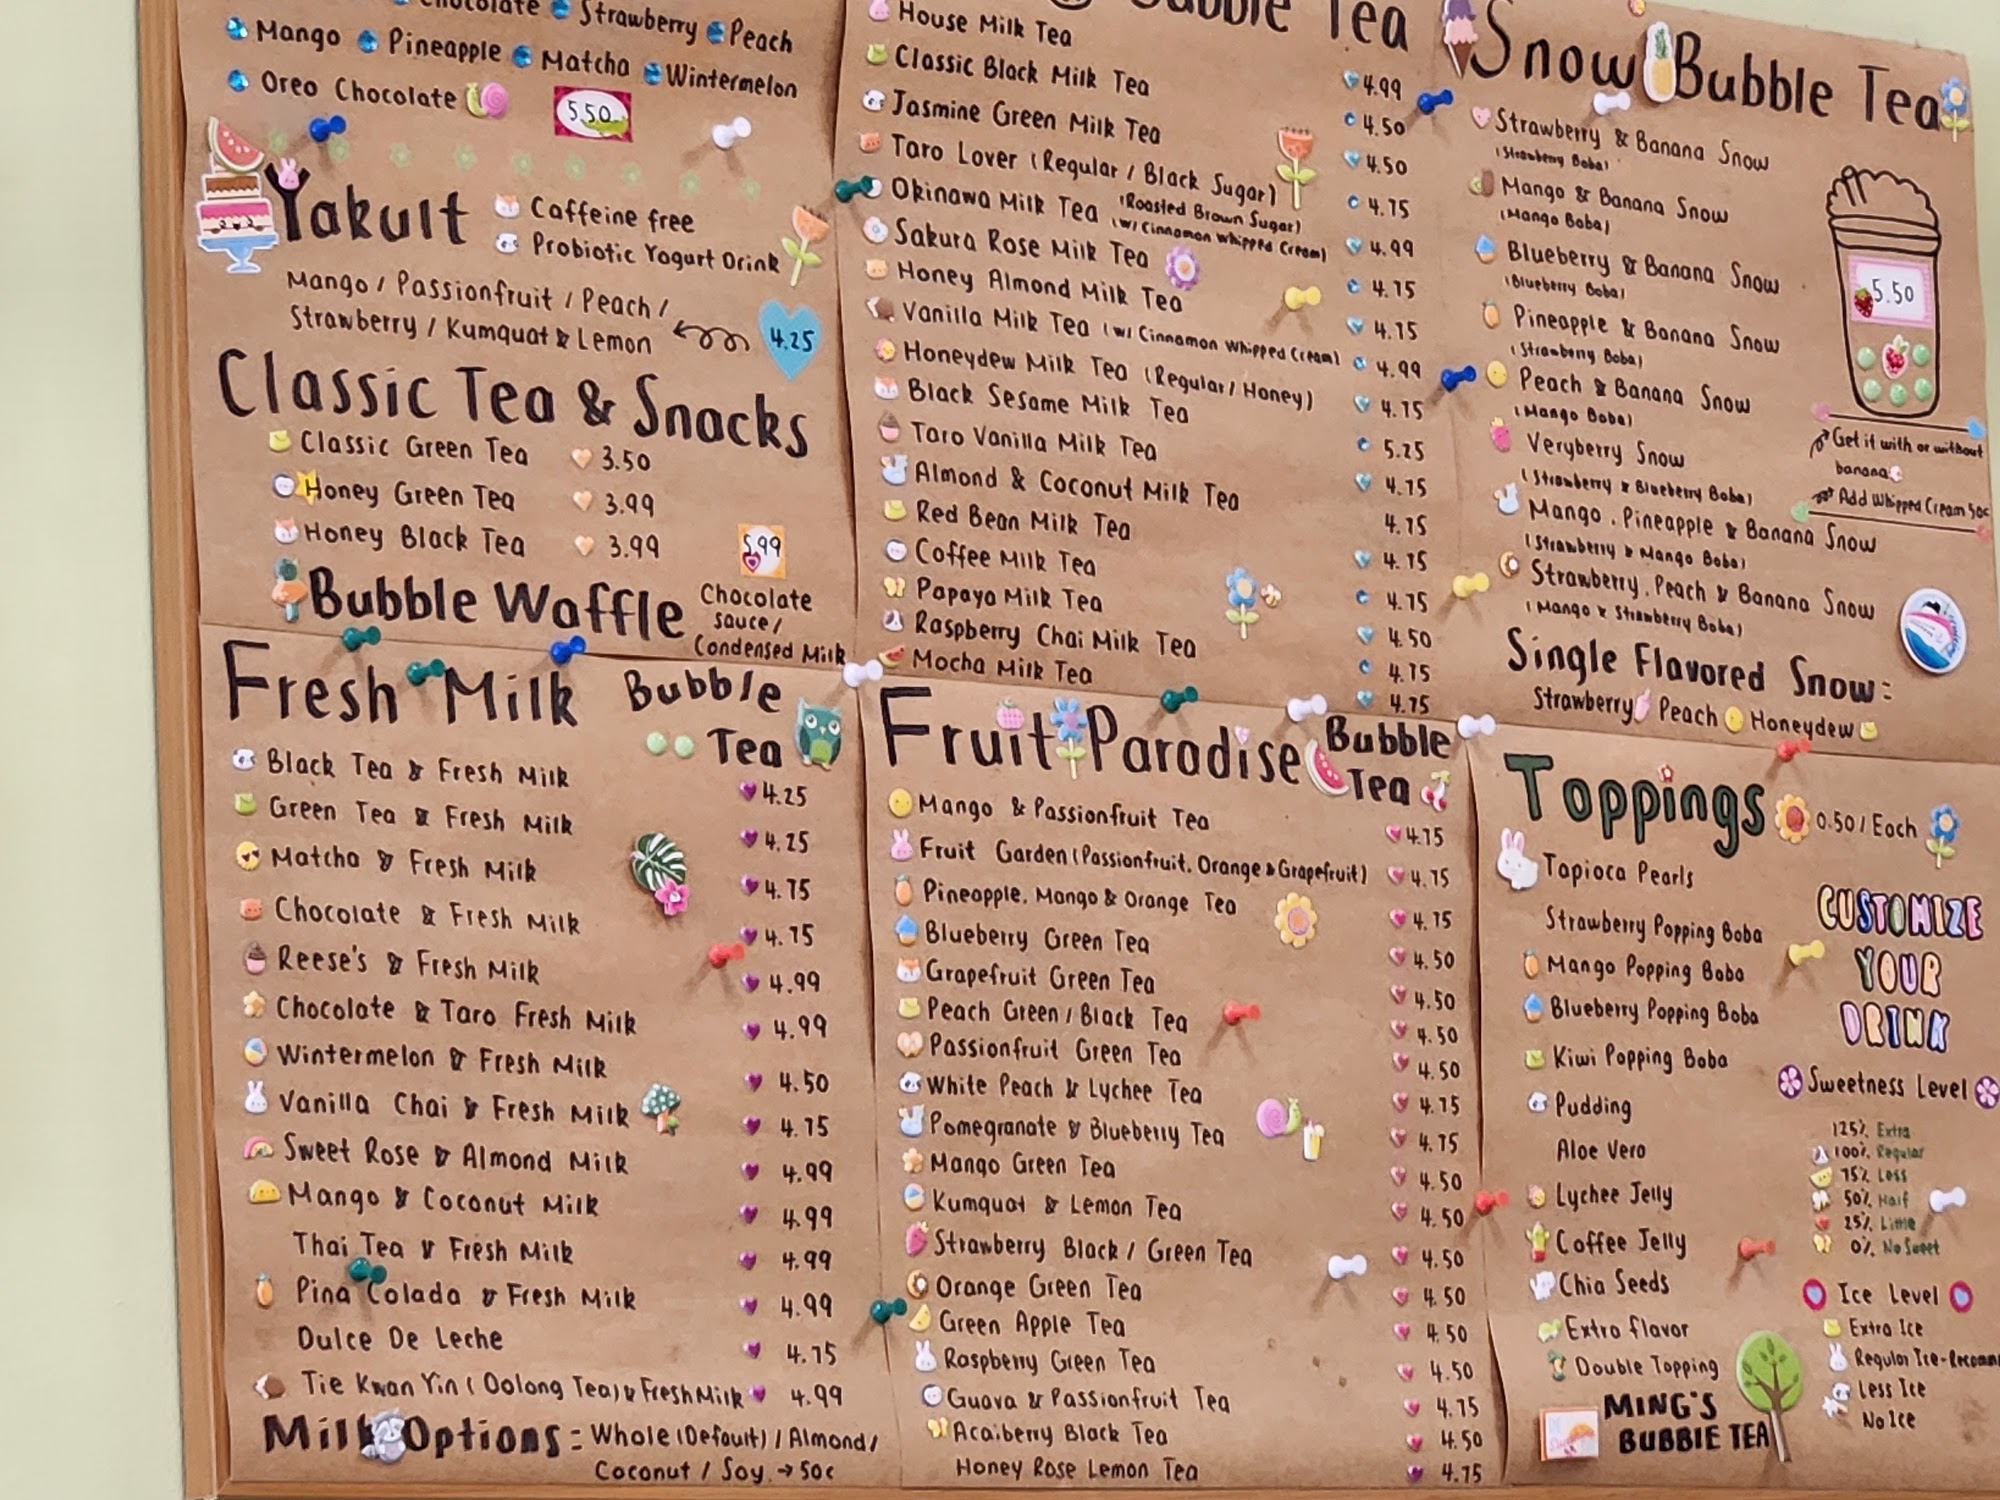 Strawberry Peach
Mango Pineapple Matcha Wintermelon
Oreo Chocolate 5.50
Yakult
Caffeine free
Probiotic Yogurt Drink
Mango / Passionfruit / Peach /
Strawberry / Kumquat & Lemon
4.25
Classic Tea & Snacks
Classic Green Tea 3.50
Honey Green Tea 3.99
Honey Black Tea 3.99
Bubble Waffle
5.99
Chocolate
sauce /
Condensed Milk
Fresh Milk Bubble
Tea
Black Tea & Fresh Milk 4.25
Green Tea & Fresh Milk 4.25
Matcha & Fresh Milk 4.75
Chocolate & Fresh Milk 4.75
Reese's & Fresh Milk 4.99
Chocolate & Taro Fresh Milk 4.99
Wintermelon & Fresh Milk 4.50
Vanilla Chai & Fresh Milk 4.75
Sweet Rose & Almond Milk 4.99
Mango & Coconut Milk 4.99
Thai Tea & Fresh Milk 4.99
Pina Colada & Fresh Milk 4.99
Dulce De Leche 4.75
Tie Kwan Yin (Oolong Tea) & Fresh Milk 4.99
Milk Options = Whole (Default) / Almond /
Coconut / Soy → 50¢
Bubble Tea
House Milk Tea 4.99
Classic Black Milk Tea 4.50
Jasmine Green Milk Tea 4.50
Taro Lover (Regular / Black Sugar) 4.75
Okinawa Milk Tea (Roasted Brown Sugar) 4.99
Sakura Rose Milk Tea (w/ Cinnamon Whipped Cream) 4.75
Honey Almond Milk Tea 4.75
Vanilla Milk Tea (w/ Cinnamon Whipped Cream) 4.99
Honeydew Milk Tea (Regular / Honey) 4.75
Black Sesame Milk Tea 5.25
Taro Vanilla Milk Tea 4.75
Almond & Coconut Milk Tea 4.75
Red Bean Milk Tea 4.75
Coffee Milk Tea 4.75
Papaya Milk Tea 4.50
Raspberry Chai Milk Tea 4.75
Mocha Milk Tea 4.75
Fruit Paradise Bubble
Tea
Mango & Passionfruit Tea 4.75
Fruit Garden (Passionfruit, Orange & Grapefruit) 4.75
Pineapple, Mango & Orange Tea 4.75
Blueberry Green Tea 4.50
Grapefruit Green Tea 4.50
Peach Green / Black Tea 4.50
Passionfruit Green Tea 4.50
White Peach & Lychee Tea 4.75
Pomegranate & Blueberry Tea 4.75
Mango Green Tea 4.50
Kumquat & Lemon Tea 4.50
Strawberry Black / Green Tea 4.50
Orange Green Tea 4.50
Green Apple Tea 4.50
Raspberry Green Tea 4.50
Guava & Passionfruit Tea 4.75
Acaiberry Black Tea 4.50
Honey Rose Lemon Tea 4.75
Snow Bubble Tea
Strawberry & Banana Snow
(Strawberry Boba)
Mango & Banana Snow
(Mango Boba)
Blueberry & Banana Snow
(Blueberry Boba)
Pineapple & Banana Snow
(Strawberry Boba)
Peach & Banana Snow
(Mango Boba)
Veryberry Snow
(Strawberry & Blueberry Boba)
Mango, Pineapple & Banana Snow
(Strawberry & Mango Boba)
Strawberry, Peach & Banana Snow
(Mango & Strawberry Boba)
5.50
Get it with or without
banana
Add Whipped Cream 50¢
Single Flavored Snow:
Strawberry Peach Honeydew
Toppings 0.50 / Each
Tapioca Pearls
Strawberry Popping Boba
Mango Popping Boba
Blueberry Popping Boba
Kiwi Popping Boba
Pudding
Aloe Vera
Lychee Jelly
Coffee Jelly
Chia Seeds
Extra flavor
Double Topping
MING'S
BUBBLE TEA
CUSTOMIZE
YOUR
DRINK
Sweetness Level
125% Extra
100% Regular
75% Less
50% Half
25% Little
0% No Sweet
Ice Level
Extra Ice
Regular Ice-Recomm
Less Ice
No Ice